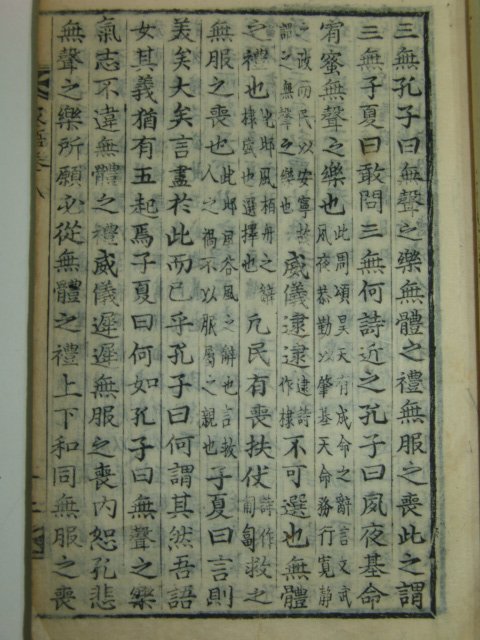 三無孔子曰無聲之樂無體之禮無服之喪此之謂
三無子夏曰敢問三無何詩近之孔子曰夙夜基命
宥密無聲之樂也此周頌昊天有成命之辭言文武夙夜恭勤以肇基天命務行寬靜
之政而民以安寧故謂之無聲之樂也威儀逮逮逮詩作棣不可選也無體
之禮也此邶風栢舟之辭棣盛也選擇也凡民有喪扶伏詩作匍匐救之
無服之喪也此邶風谷風之辭也言救人之禍不以服屬之親也子夏曰言則
美矣大矣言盡於此而已乎孔子曰何謂其然吾語
女其義猶有五起焉子夏曰何如孔子曰無聲之樂
氣志不違無體之禮威儀遲遲無服之喪內恕孔悲
無聲之樂所願必從無體之禮上下和同無服之喪